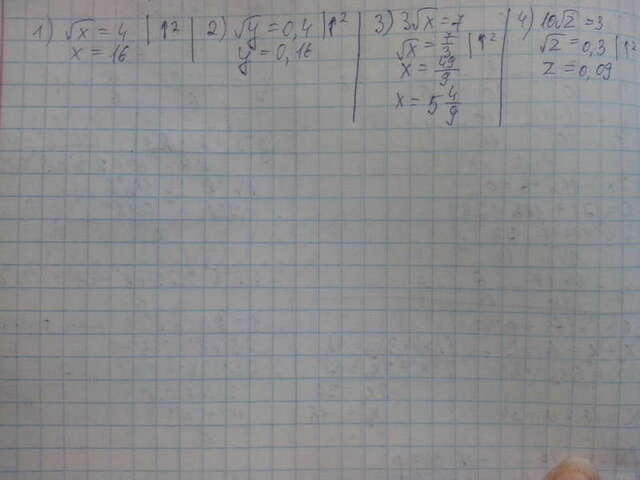 1) √x = 4 | ↑²
x = 16
2) √y = 0,4 | ↑²
y = 0,16
3) 3√x = 7
√x = 7/3 | ↑²
x = 49/9
x = 5 4/9
4) 10√z = 3
√z = 0,3 | ↑²
z = 0,09